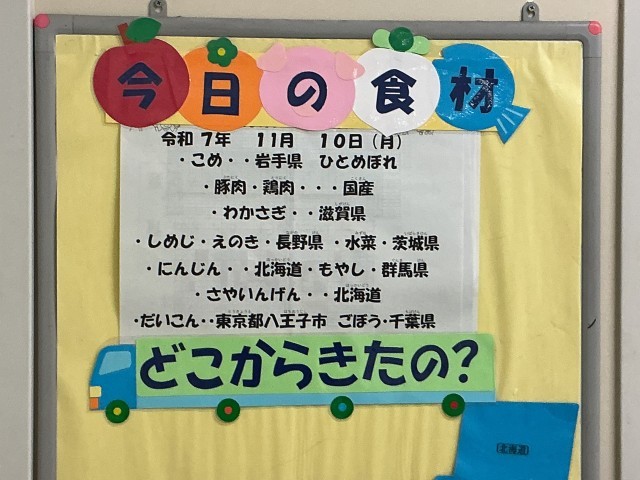 今日の食材
令和 7年 11月 10日(月)
・こめ・・岩手県 ひとめぼれ
・豚肉・鶏肉・・・国産
・わかさぎ・・滋賀県
・しめじ・えのき・長野県 ・水菜・茨城県
・にんじん・・北海道・もやし・群馬県
・さやいんげん・・北海道
・だいこん・・東京都八王子市 ごぼう・千葉県
どこからきたの?
(北海道)